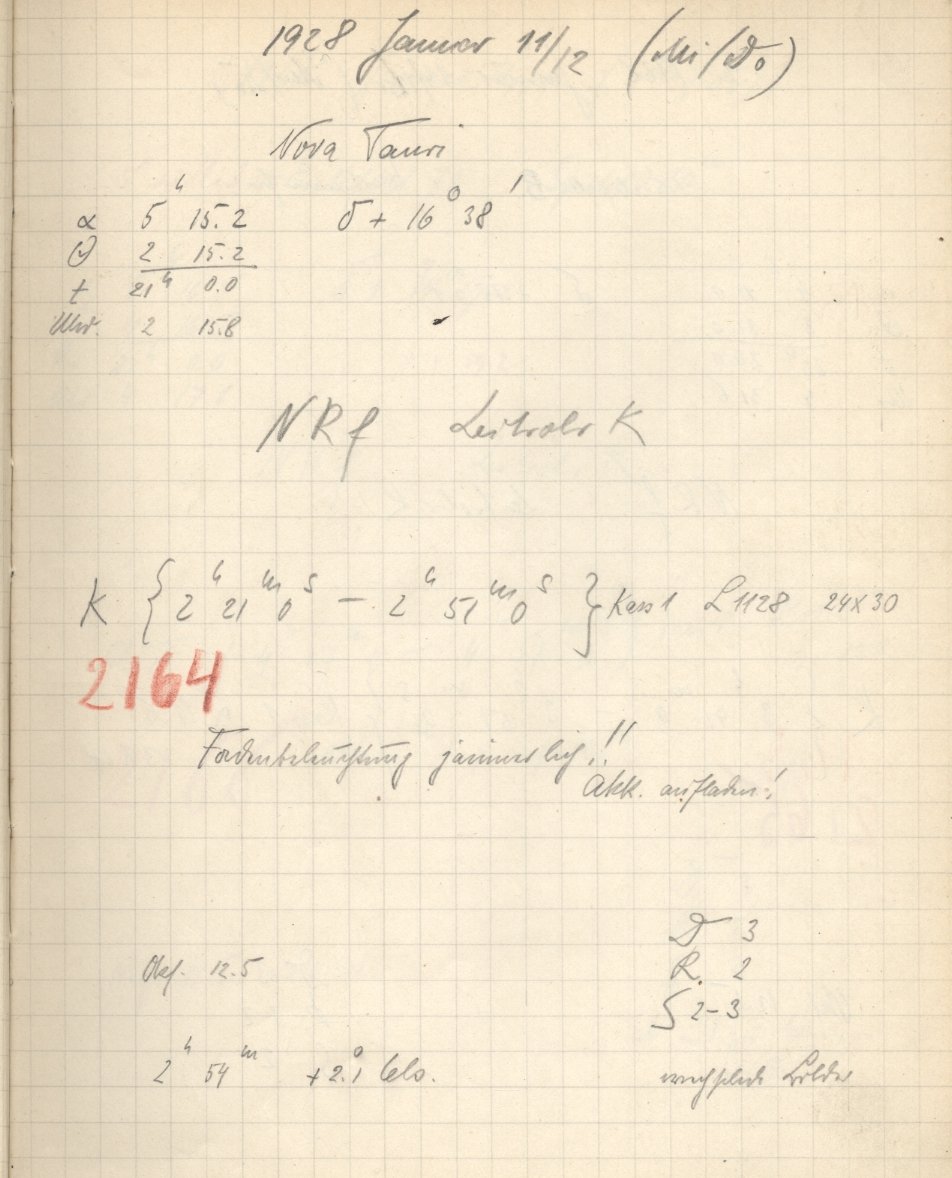 1928 Januar 11/12 (Mi/Do)
Nova Tauri
α 5ʰ 15.2 δ + 16° 38'
Θ 2 15.2
t 21ʰ 0.0
Uhr. 2 15.8
NRf Leitrohr K
K { 2ʰ 21ᵐ 0ˢ — 2ʰ 51ᵐ 0ˢ } Kass 1 L 1128 24x30
2164
Fadenbeleuchtung jämmerlich!!
Akk. aufladen!
D 3
Okf. 12.5 R. 2
S 2-3
2ʰ 54ᵐ +2.°1 Cels. wechselnde Bilder